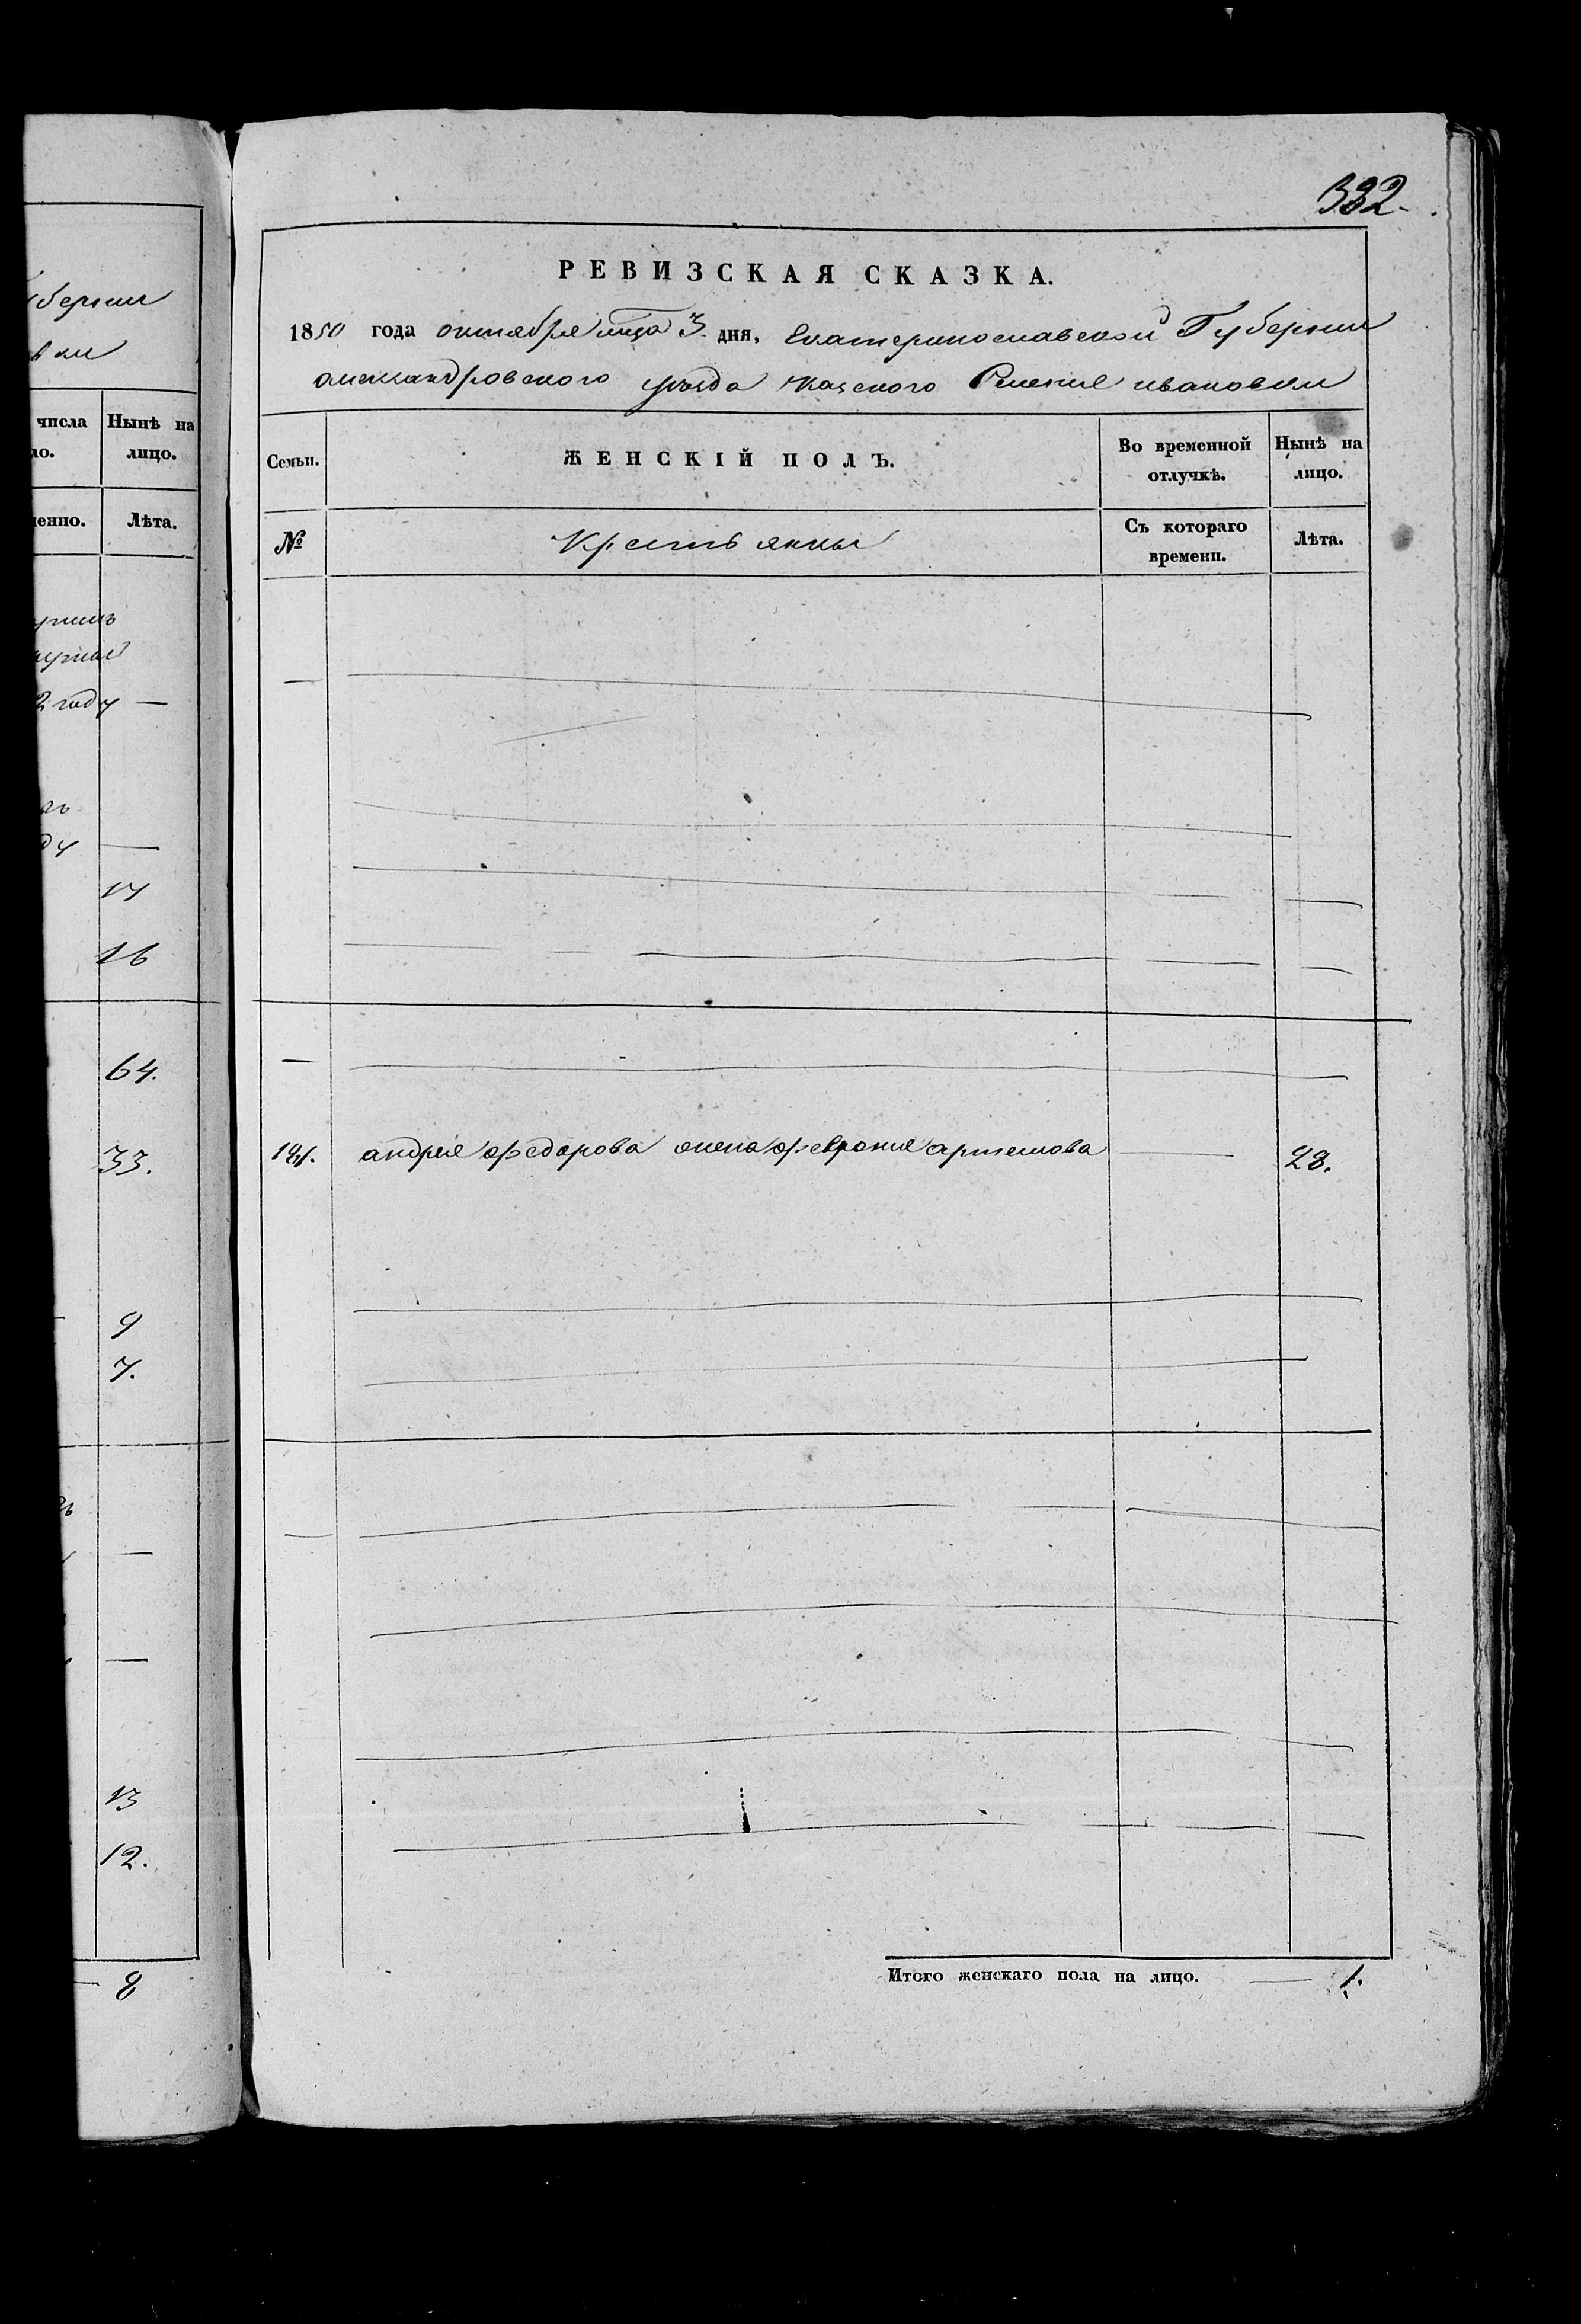 332.
РЕВИЗСКАЯ СКАЗКА.
1850 года октября мца 3 дня, Екатеринославской Губернии
александровского уезда казеного Селения ивановки
Семьи.
ЖЕНСКІЙ ПОЛЪ.
Во временной отлучкѣ.
Нынѣ на лицо.
№
Крестьянны
Съ котораго времени.
Лѣта.
андрея федорова жена феврония артемова
28.
Итого женскаго пола на лицо. — 1.
числа
Нынѣ на лицо.
Лѣта.
году —
17
16
64.
33.
9
7.
13
12.
8